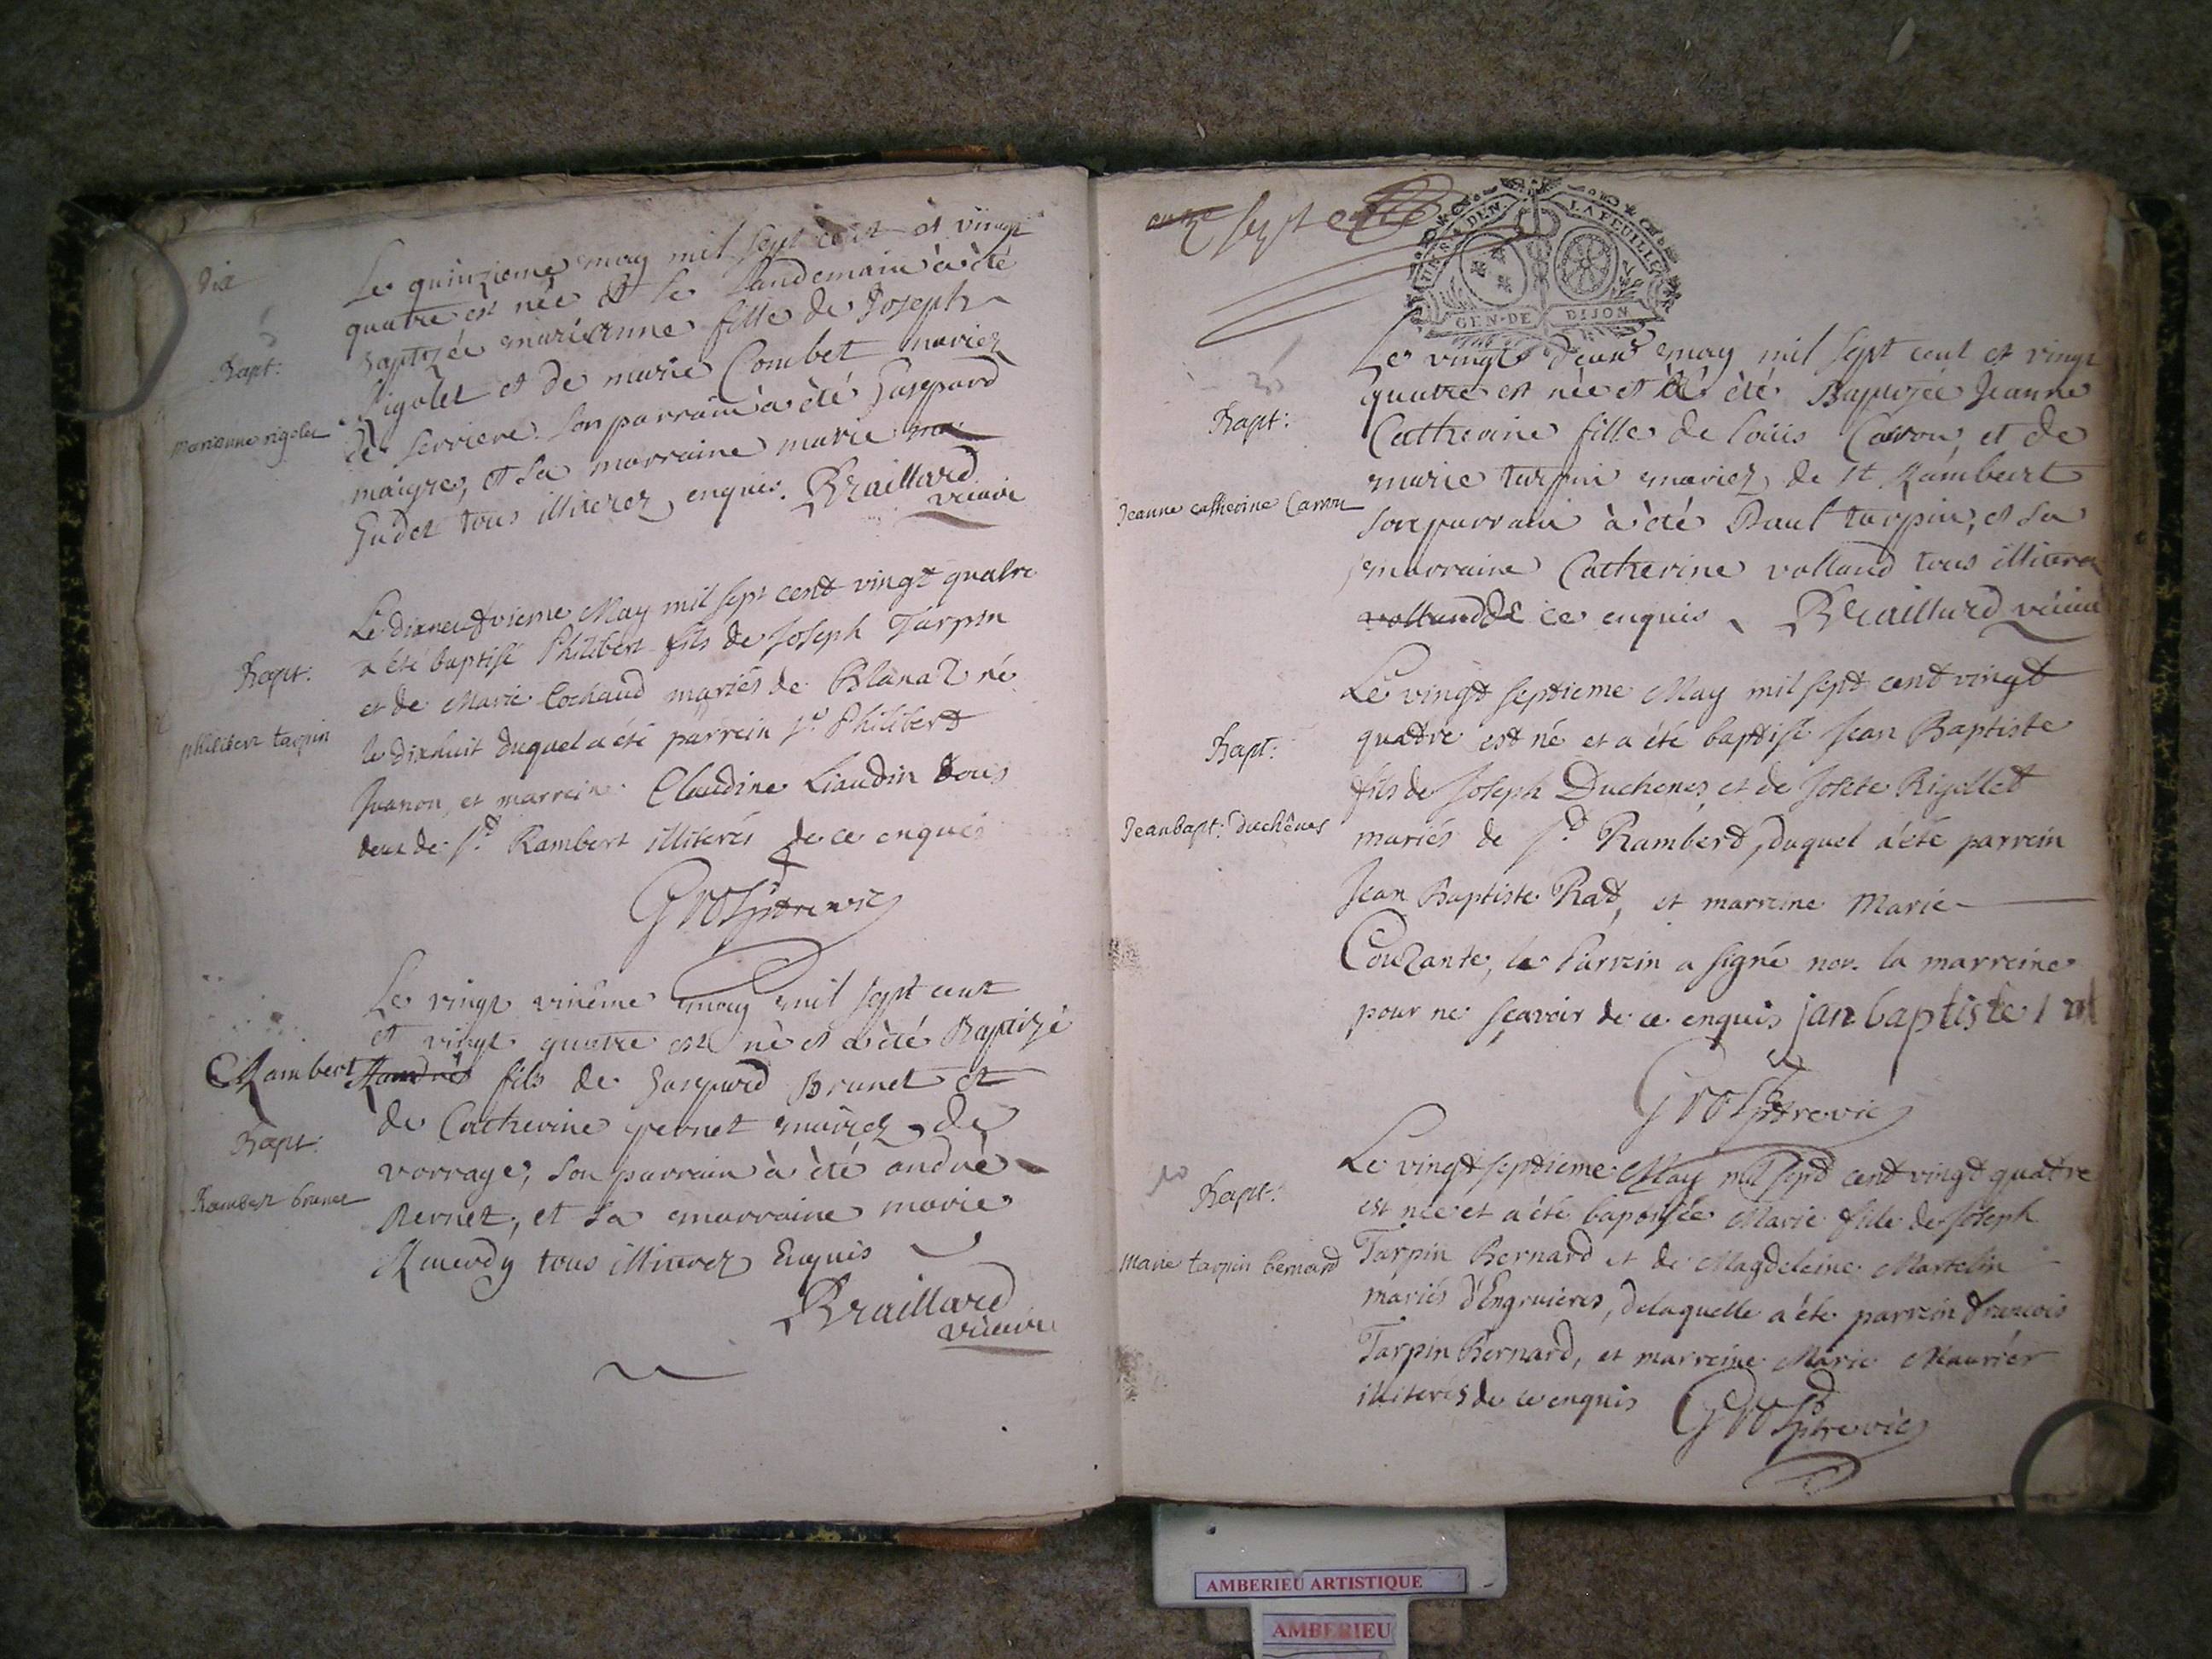 dix
Bapt:
marianne rigolet
Le quinzieme may mil sept cent et vingt
quatre est née et le landemain à été
baptizée marianne fille de Joseph
Rigolet et de marie Combet mariez
de Serriere. Son parrain à été Gaspard
maigre, et sa marraine marie ma
Gudet tous illiterez enquis. Braillard
vicaire
Bapt:
philibert tarpin
Le dixneufvieme May mil sept cent vingt quatre
a été baptisé Philibert fils de Joseph Tarpin
et de Marie Cochaud mariés de Blanaz né
le dixhuit duquel a été parrein Sr Philibert
Juanon, et marreine Claudine Liaudin tous
deux de St Rambert illiterés de ce enquis
Grosptrevic
Le vingt unième may mil sept cent
et vingt quatre est né et à été Baptizé
Rambert fils de Gaspard Brunet et
de Catherine pernet mariez de
vorrage, son parrain à été andrè
Pernet, et sa marraine marie
tous illiterez Enquis
Braillard
vicaire
Bapt:
Rambert brunet
onze sept
LA FEUILLE
GEN. DE DIJON
Bapt:
Jeanne catherine Carron
Le vingt deux may mil sept cent et vingt
quatre est née et à été Baptizée Jeanne
Catherine fille de loüis Carron et de
marie tarpin mariez de St Rambert
son parrain à été Paul tarpin, et sa
marraine Catherine volland tous illiterez
volland de ce enquis Braillard vicaire
Bapt:
Jean bapt: Duchênes
Le vingt septieme May mil sept cent vingt
quatre est né et a été baptisé Jean Baptiste
fils de Joseph Duchenes et de Josete Rigollet
mariés de St Rambert, duquel a été parrein
Jean Baptiste Rat, et marreine Marie
Couzante, le Parrein a signé non la marreine
pour ne sçavoir de ce enquis jan baptiste rat
Grosptrevic
10
Bapt:
marie tarpin bernard
Le vingt septieme May mil sept cent vingt quatre
est née et a été baptisée Marie fille de Joseph
Tarpin Bernard et de Magdeleine Martelin
mariés d'Engruieres, delaquelle a été parrein francois
Tarpin Bernard, et marreine Marie Maurier
illiterés de ce enquis Grosptrevic
AMBERIEU ARTISTIQUE
AMBERIEU